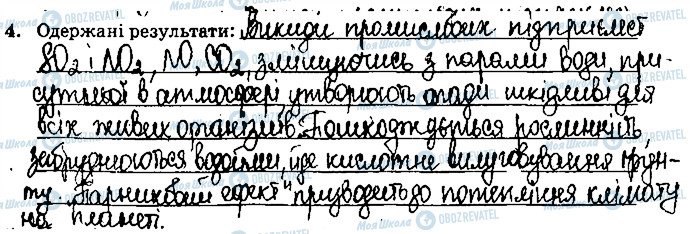 4. Одержані результати: Викиди промислових підприємст
SO2 і NO2, NO, CO2, змішуючись з парами води, при-
сутньої в атмосфері утворюють опади шкідливі для
всіх живих організмів. Пошкоджується рослинність,
забруднюються водойми, йде кислотне вилуговування ґрун-
ту. "Парниковий ефект" призводить до потепління клімату
на планеті.